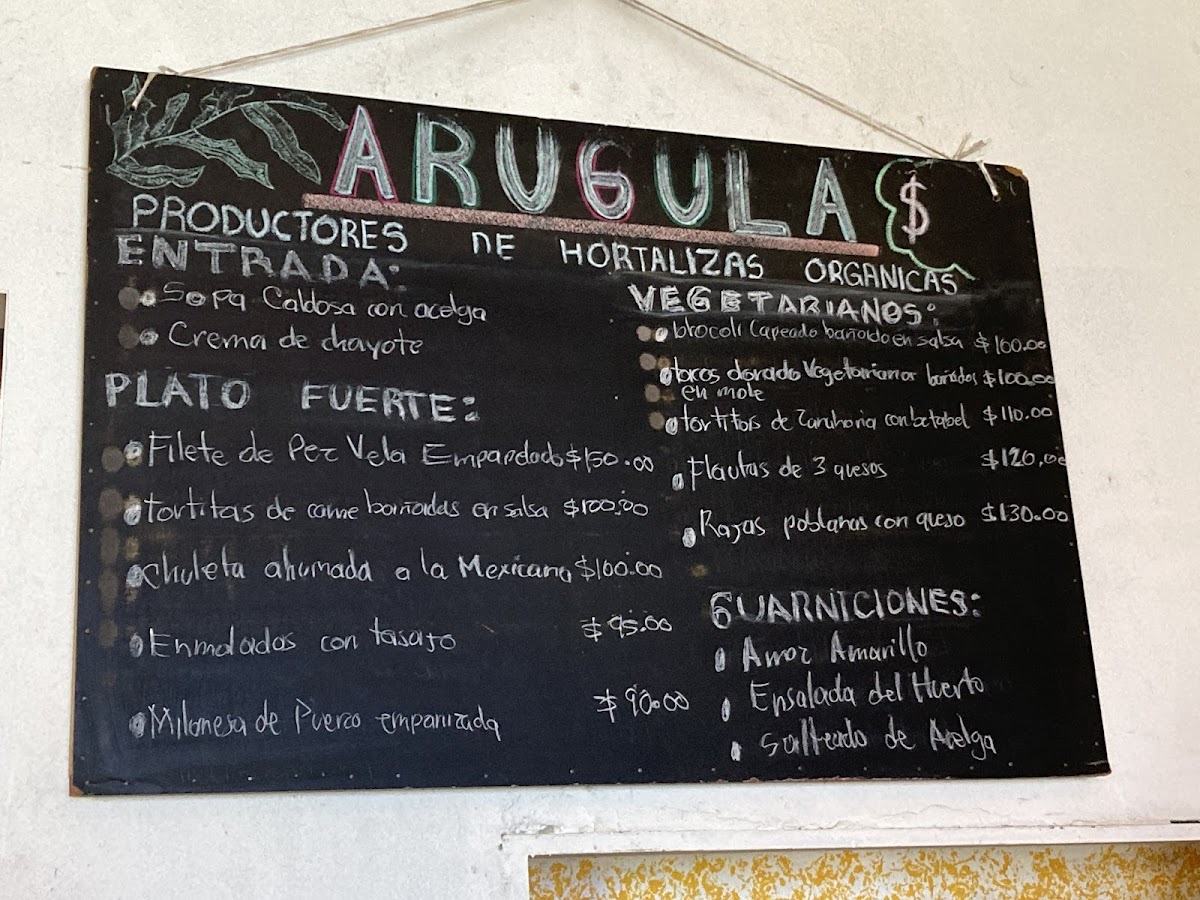 ARUGULA $
PRODUCTORES DE HORTALIZAS ORGANICAS
ENTRADA:
Sopa Caldosa con acelga
Crema de chayote
PLATO FUERTE:
Filete de Pez Vela Empandado $150.00
tortitas de carne bañadas en salsa $100.00
Chuleta ahumada a la Mexicana $100.00
Enmoladas con tasajo $95.00
Milanesa de Puerco empanizada $90.00
VEGETARIANOS:
brocoli Capeado bañado en salsa $100.00
tacos dorado Vegetarianos bañados $100.00
en mole
tortitas de Zanahoria con betabel $110.00
Flautas de 3 quesos $120.00
Rajas poblanas con queso $130.00
GUARNICIONES:
Arroz Amarillo
Ensalada del Huerto
Salteado de Acelga